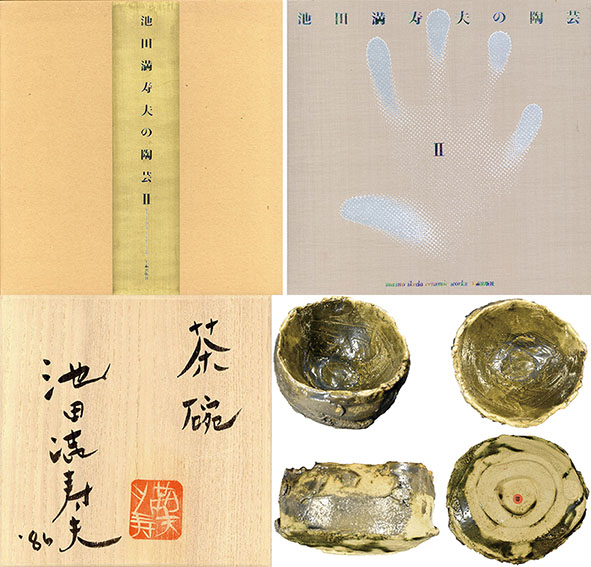 池田満寿夫の陶芸 II
池田満寿夫の陶芸
II
masuo ikeda ceramic works
茶碗
池田満寿夫
'86